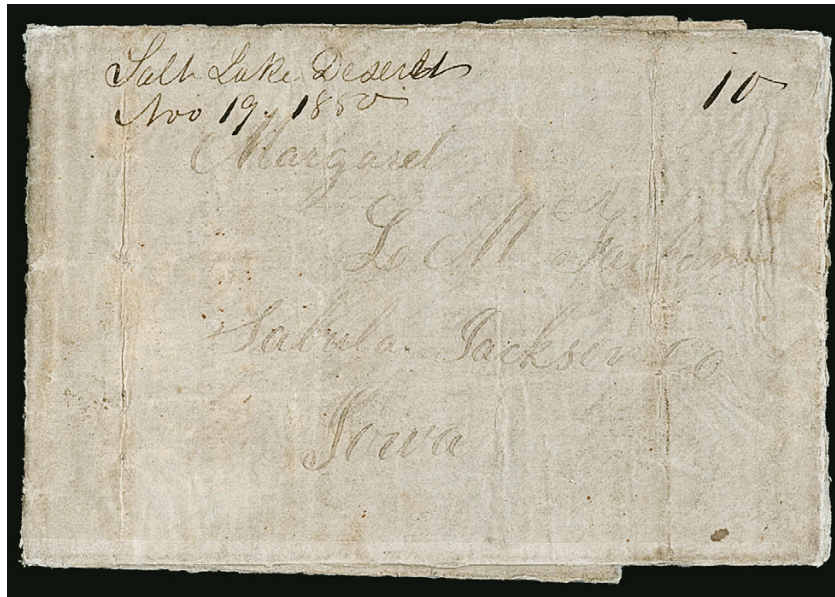 Salt Lake Deseret
10
Nov 19, 1850
Margaret
L Mc
Sabula Jackson Co
Iowa